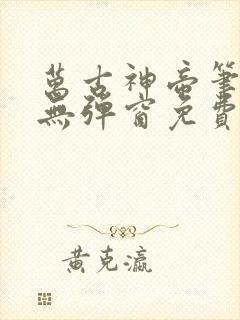 萬古神帝筆
無彈窗免費
黄克瀛